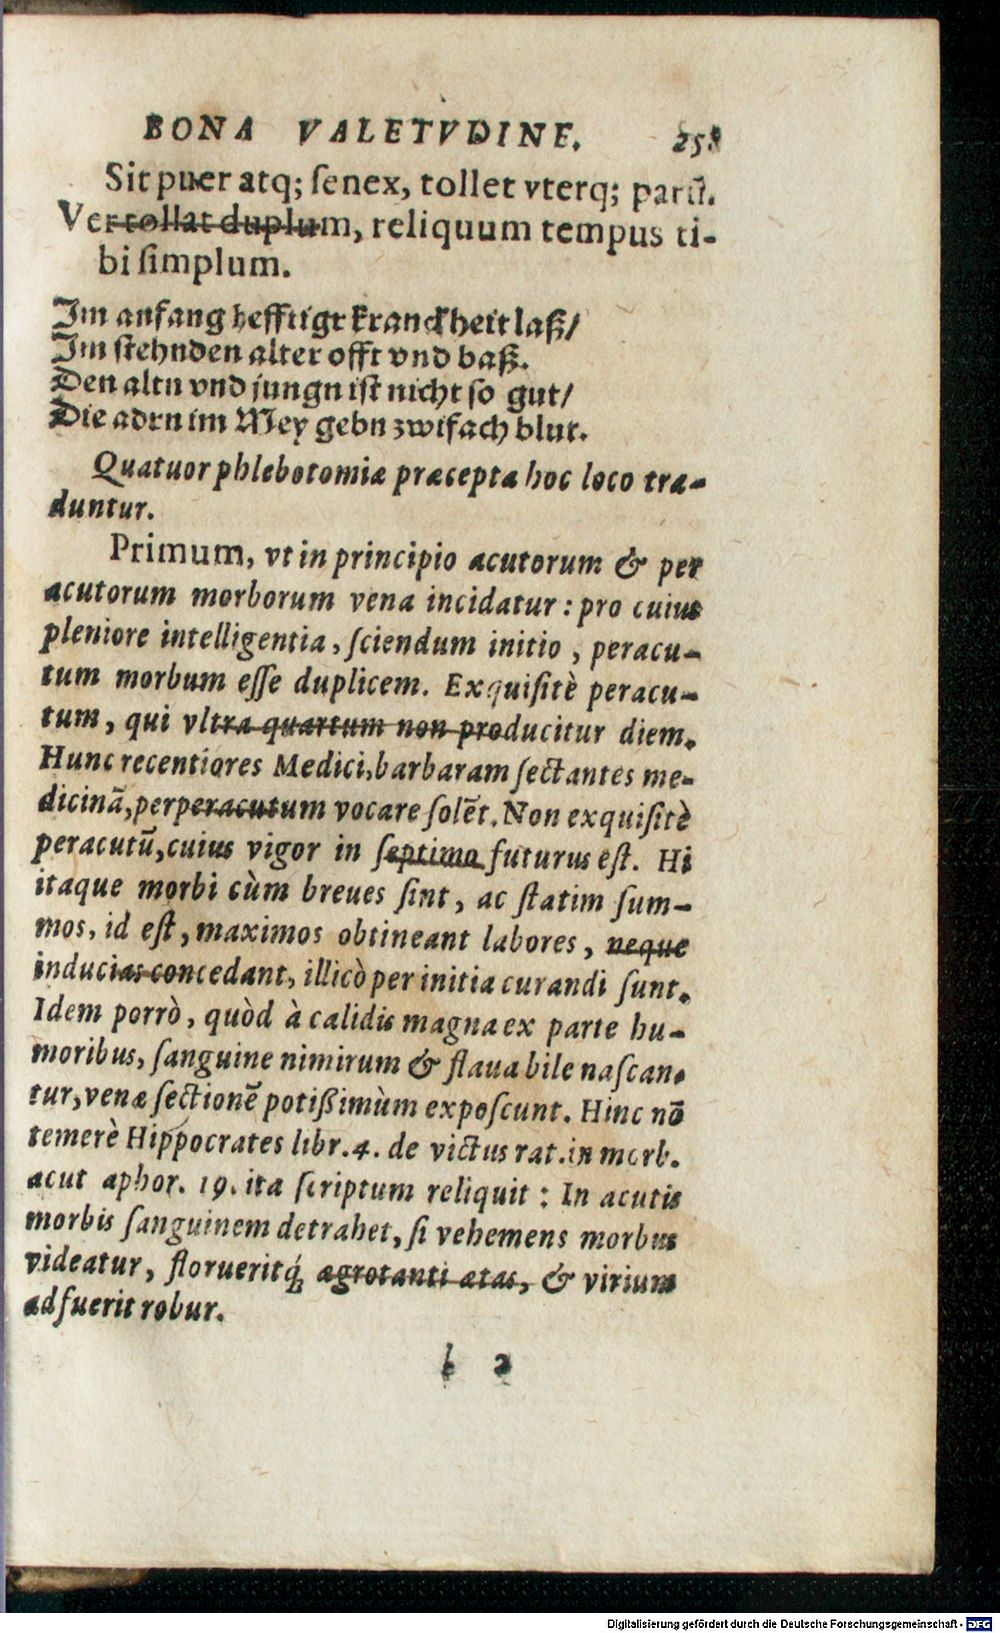 BONA VALETVDINE. 258
Sit puer atq; ſenex, tollet vterq; parū.
Ver tollat duplum, reliquum tempus ti-
bi ſimplum.
Im anfang hefftigr kranckheit laß/
Im ſtehnden alter offt vnd baß.
Den altn vnd jungn iſt nicht ſo gut/
Die adrn im Mey gebn zwifach blut.
Quatuor phlebotomiæ præcepta hoc loco tra-
duntur.
Primum, vt in principio acutorum & per
acutorum morborum vena incidatur: pro cuius
pleniore intelligentia, ſciendum initio, peracu-
tum morbum eſſe duplicem. Exquiſitè peracu-
tum, qui vltra quartum non producitur diem.
Hunc recentiores Medici, barbaram ſectantes me-
dicinã, perperacutum vocare ſolẽt. Non exquiſitè
peracutũ, cuius vigor in ſeptimo futurus eſt. Hi
itaque morbi cùm breues ſint, ac ſtatim ſum-
mos, id eſt, maximos obtineant labores, neque
inducias concedant, illicò per initia curandi ſunt.
Idem porrò, quòd à calidis magna ex parte hu-
moribus, ſanguine nimirum & flaua bile naſcan-
tur, venæ ſectionẽ potißimùm expoſcunt. Hinc nõ
temerè Hippocrates libr. 4. de victus rat. in morb.
acut aphor. 19. ita ſcriptum reliquit: In acutis
morbis ſanguinem detrahet, ſi vehemens morbus
videatur, florueritq́; ægrotanti ætas, & virium
adfuerit robur.
b 2
Digitalisierung gefördert durch die Deutsche Forschungsgemeinschaft - DFG